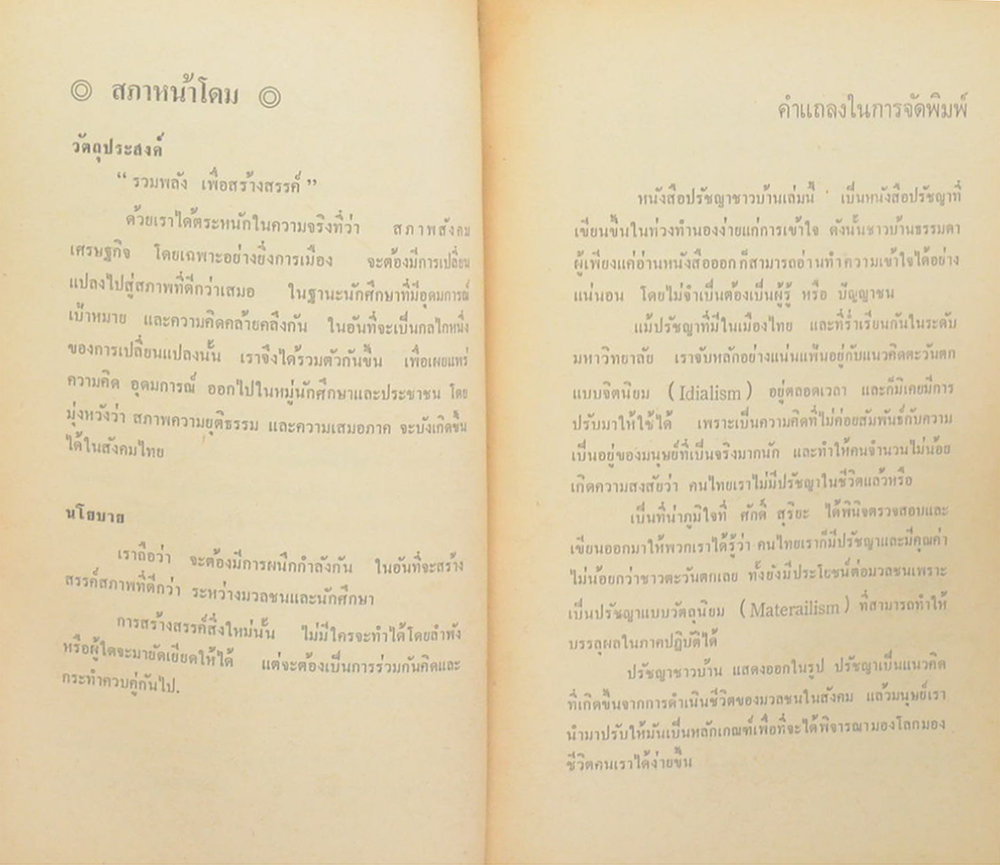 ◎ สภาหน้าโดม ◎
วัตถุประสงค์
“ รวมพลัง เพื่อสร้างสรรค์ ”
ด้วยเราได้ตระหนักในความจริงที่ว่า สภาพสังคม
เศรษฐกิจ โดยเฉพาะอย่างยิ่งการเมือง จะต้องมีการเปลี่ยน
แปลงไปสู่สภาพที่ดีกว่าเสมอ ในฐานะนักศึกษาที่มีอุดมการณ์
เป้าหมาย และความคิดคล้ายคลึงกัน ในอันที่จะเป็นกลไกหนึ่ง
ของการเปลี่ยนแปลงนั้น เราจึงได้รวมตัวกันขึ้น เพื่อเผยแพร่
ความคิด อุดมการณ์ ออกไปในหมู่นักศึกษาและประชาชน โดย
มุ่งหวังว่า สภาพความยุติธรรม และความเสมอภาค จะบังเกิดขึ้น
ได้ในสังคมไทย
นโยบาย
เราถือว่า จะต้องมีการผนึกกำลังกัน ในอันที่จะสร้าง
สรรค์สภาพที่ดีกว่า ระหว่างมวลชนและนักศึกษา
การสร้างสรรค์สิ่งใหม่นั้น ไม่มีใครจะทำได้โดยลำพัง
หรือผู้ใดจะมายัดเยียดให้ได้ แต่จะต้องเป็นการร่วมกันคิดและ
กระทำควบคู่กันไป.
คำแถลงในการจัดพิมพ์
หนังสือปรัชญาชาวบ้านเล่มนี้ เป็นหนังสือปรัชญาที่
เขียนขึ้นในท่วงทำนองง่ายแก่การเข้าใจ ดังนั้นชาวบ้านธรรมดา
ผู้เพียงแค่อ่านหนังสือออก ก็สามารถอ่านทำความเข้าใจได้อย่าง
แน่นอน โดยไม่จำเป็นต้องเป็นผู้รู้ หรือ ปัญญาชน
แม้ปรัชญาที่มีในเมืองไทย และที่ร่ำเรียนกันในระดับ
มหาวิทยาลัย เราจับหลักอย่างแน่นแฟ้นอยู่กับแนวคิดตะวันตก
แบบจิตนิยม (Idialism) อยู่ตลอดเวลา และก็มิเคยมีการ
ปรับมาให้ใช้ได้ เพราะเป็นความคิดที่ไม่ค่อยสัมพันธ์กับความ
เป็นอยู่ของมนุษย์ที่เป็นจริงมากนัก และทำให้คนจำนวนไม่น้อย
เกิดความสงสัยว่า คนไทยเราไม่มีปรัชญาในชีวิตแล้วหรือ
เป็นที่น่าภูมิใจที่ ศักดิ์ สุริยะ ได้พินิจตรวจสอบและ
เขียนออกมาให้พวกเราได้รู้ว่า คนไทยเราก็มีปรัชญาและมีคุณค่า
ไม่น้อยกว่าชาวตะวันตกเลย ทั้งยังมีประโยชน์ต่อมวลชนเพราะ
เป็นปรัชญาแบบวัตถุนิยม (Materailism) ที่สามารถทำให้
บรรลุผลในภาคปฏิบัติได้
ปรัชญาชาวบ้าน แสดงออกในรูป ปรัชญาเป็นแนวคิด
ที่เกิดขึ้นจากการดำเนินชีวิตของมวลชนในสังคม แล้วมนุษย์เรา
นำมาปรับให้มันเป็นหลักเกณฑ์เพื่อที่จะได้พิจารณามองโลกมอง
ชีวิตคนเราได้ง่ายขึ้น